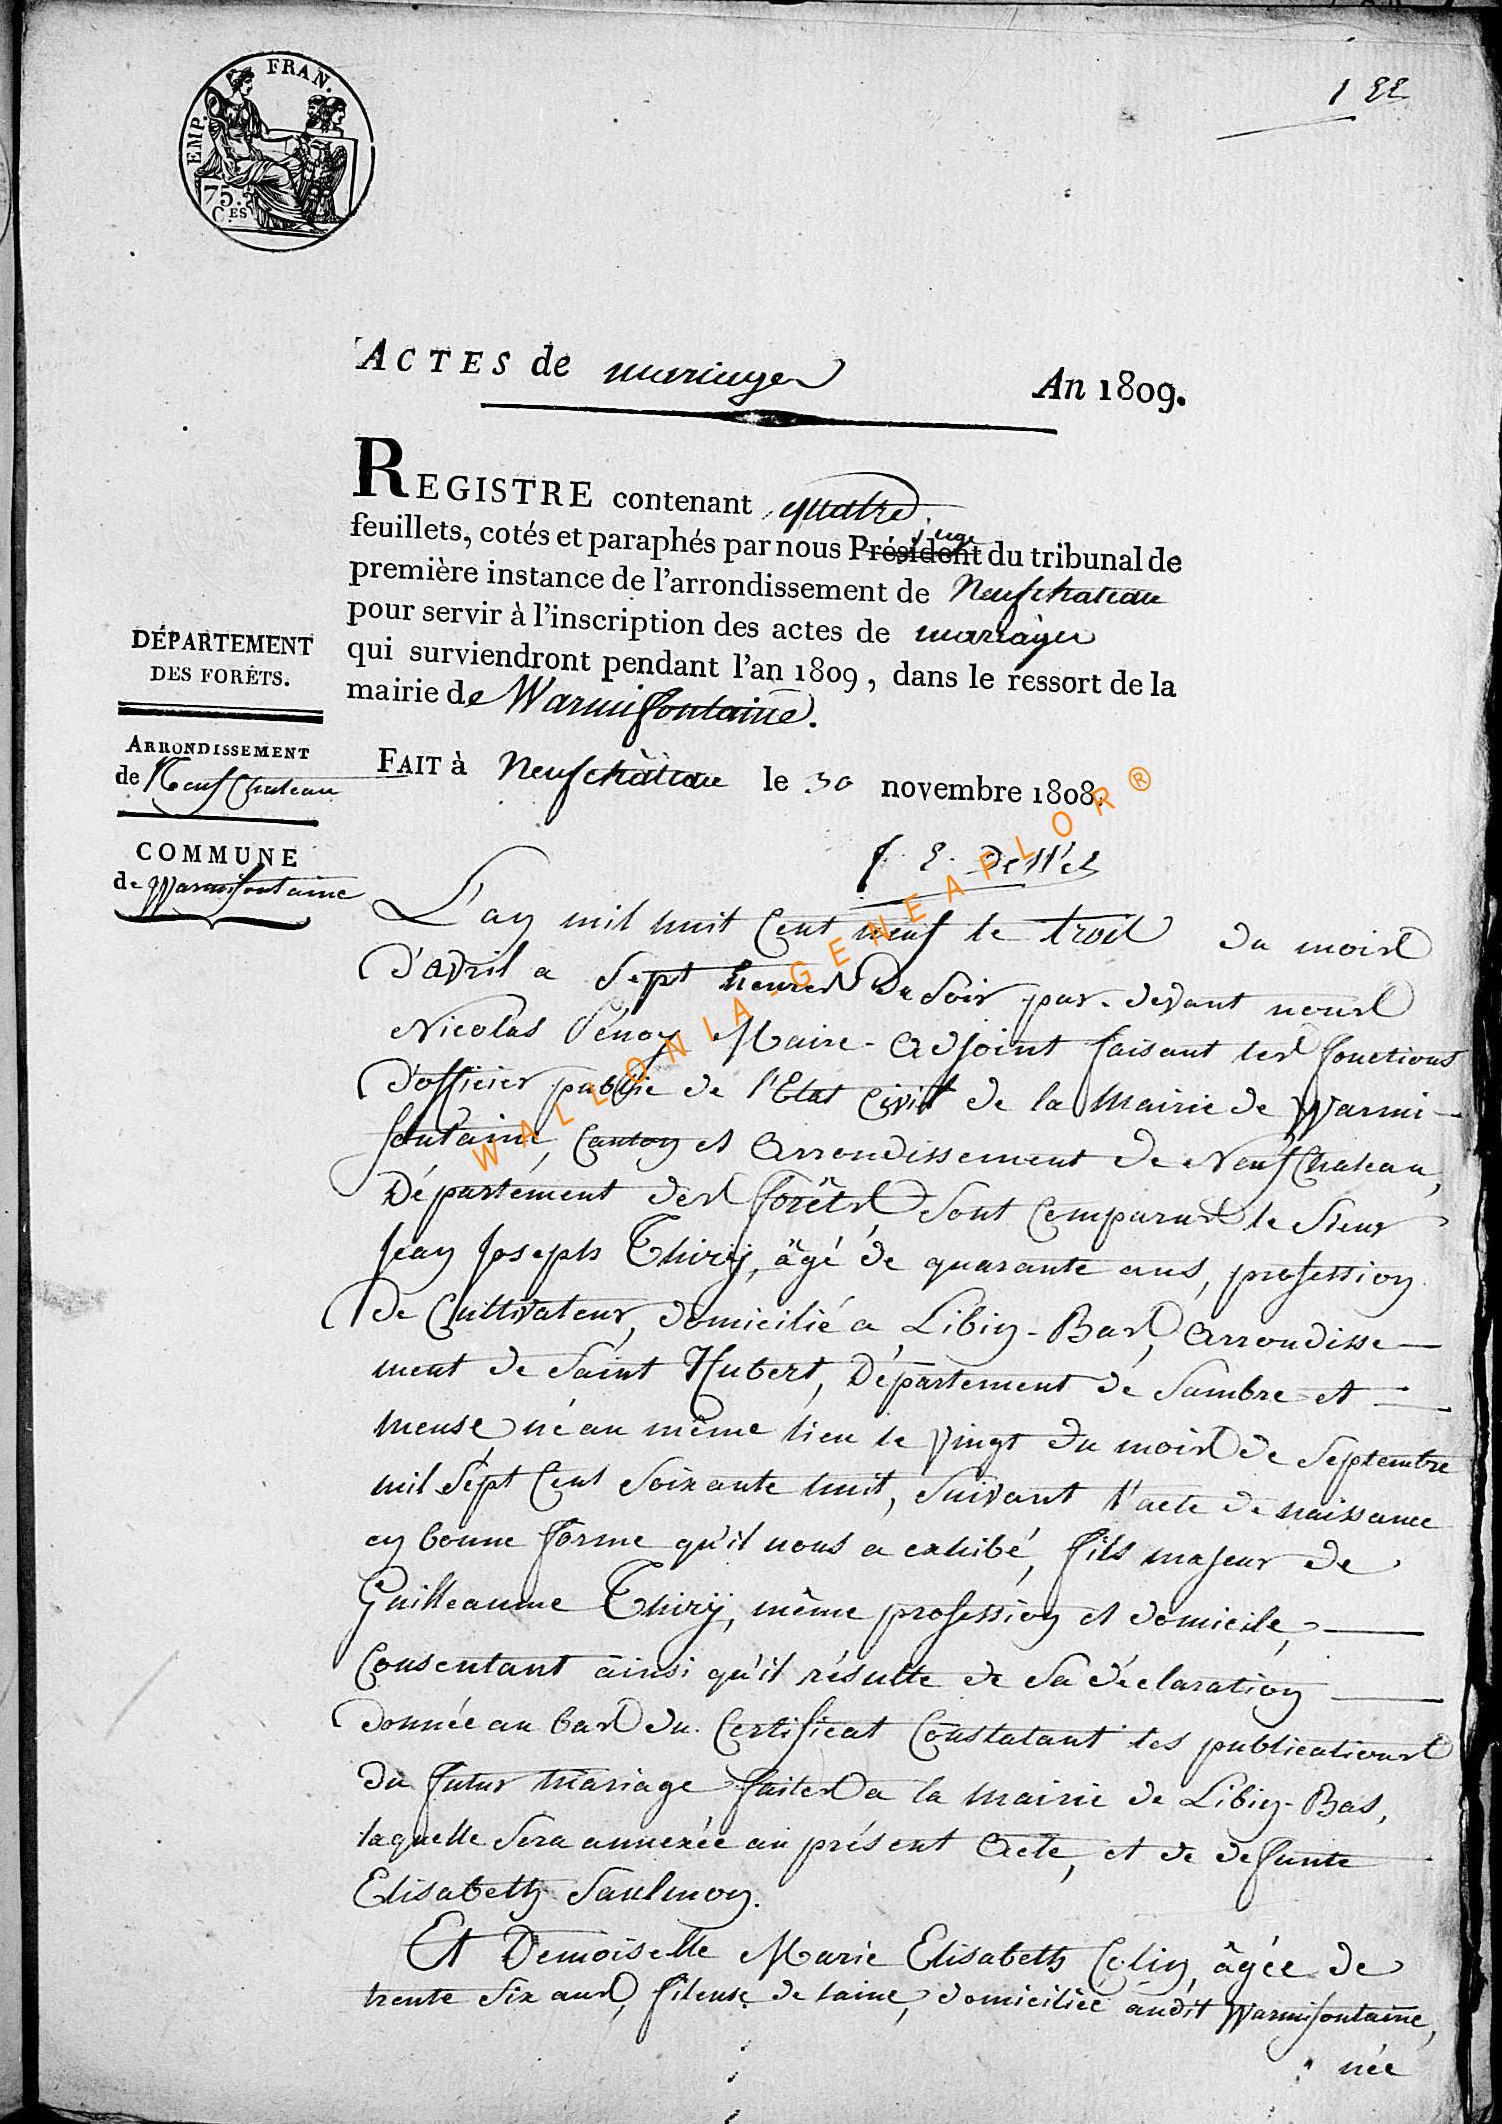 EMP. FRAN.
75.
C.ES
ACTES de mariages An 1809.
REGISTRE contenant quatre
feuillets, cotés et paraphés par nous Président juge du tribunal de
première instance de l'arrondissement de Neufchateau
pour servir à l'inscription des actes de mariages
qui surviendront pendant l'an 1809, dans le ressort de la
mairie de Warmifontaine.
FAIT à Neufchâteau le 30 novembre 1808.
DÉPARTEMENT
DES FORÊTS.
ARRONDISSEMENT
de Neufchateau
COMMUNE
de Warmifontaine
L'an mil huit Cent neuf le trois du mois
D'avril a Sept heures Du Soir par-devant nous
Nicolas Pénoy Maire-Adjoint faisant les fonctions
D'officier public de l'Etat Civil de la Mairie de Warmi-
fontaine, Canton et Arrondissement de Neufchateau,
Département des forêts Sont Comparus le Sieur
Jean Joseph Thirÿ, âgé de quarante ans, profession
de Cultivateur, domicilié a Libin-Bas, Arrondisse-
ment de Saint Hubert, Département de Sambre et
meuse, né au même lieu le vingt du mois de Septembre
mil Sept Cent Soixante huit, Suivant l'acte de naissance
en bonne forme qu'il nous a exhibé, fils majeur de
Guilleaume Thirÿ, même profession et domicile,
Consentant ainsi qu'il résulte de Sa déclaration
donnée au bas du Certificat Constatant les publications
du futur mariage faites a la mairie de Libin-Bas,
laquelle Sera annexée au présent Acte, et de defunte
Elisabeth Saulmon.
Et Demoiselle Marie Elisabeth Colin, âgée de
trente Six ans, fileuse de laine, domiciliée audit Warmifontaine,
née
WALLONIA-GENEAFLOR®